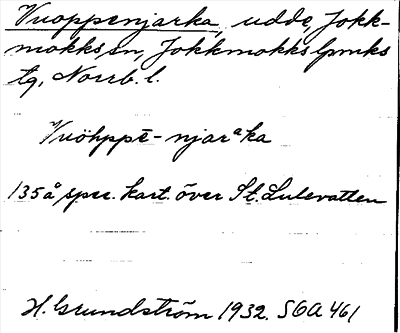 Vuoppenjarka, udde, Jokk-
mokks sn, Jokkmokks lpmks
tg, Norrb. l.
Vuöhppē-njarᵃka
135 å spec. kart. över St. Lulevatten
H. Grundström 1932. SOA 461